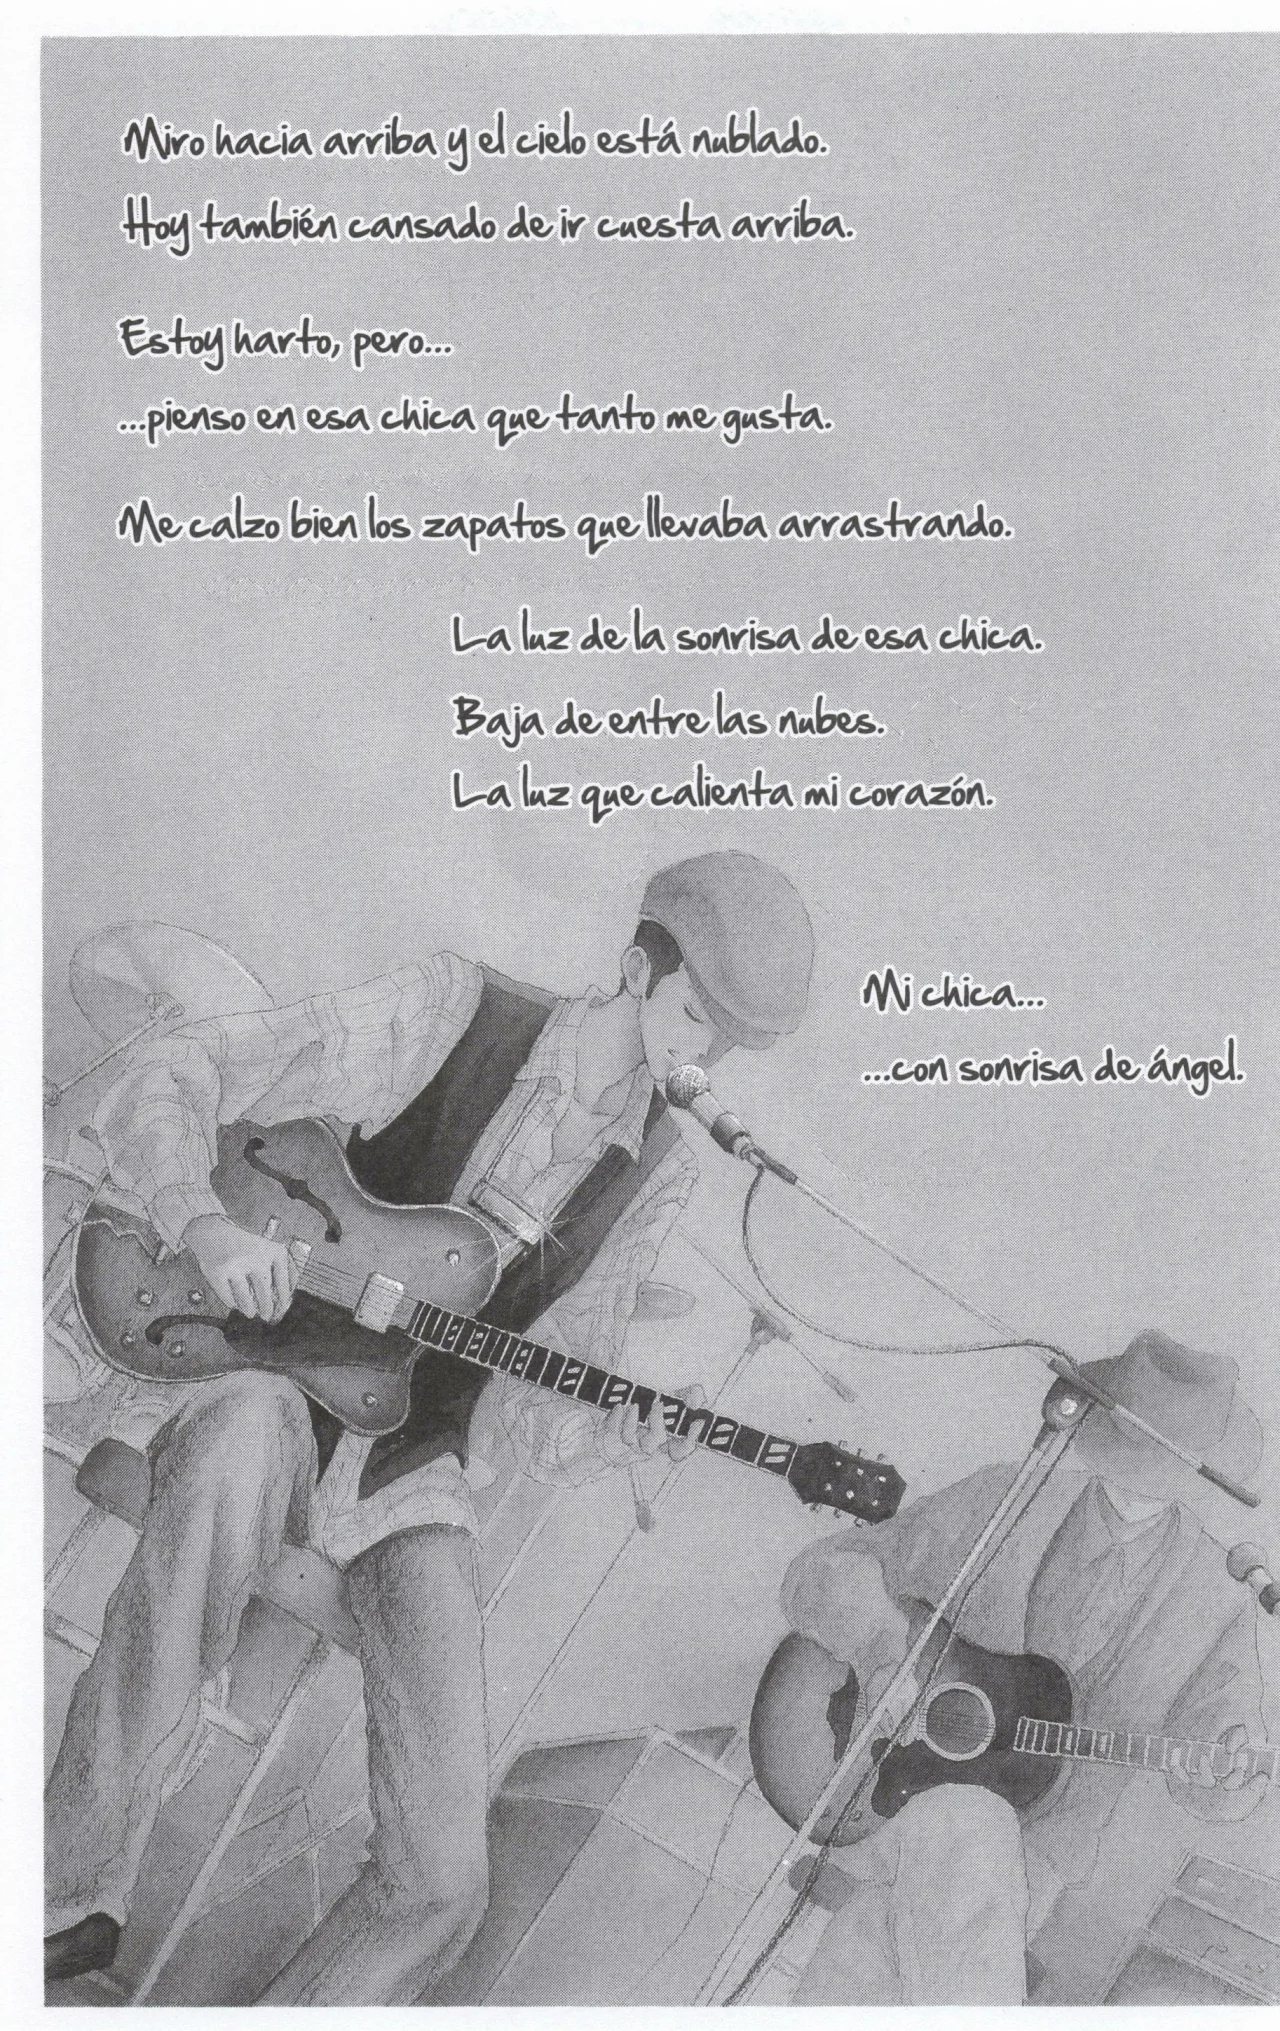 Miro hacia arriba y el cielo está nublado.
Hoy también cansado de ir cuesta arriba.
Estoy harto, pero...
...pienso en esa chica que tanto me gusta.
Me calzo bien los zapatos que llevaba arrastrando.
La luz de la sonrisa de esa chica.
Baja de entre las nubes.
La luz que calienta mi corazón.
Mi chica...
...con sonrisa de ángel.